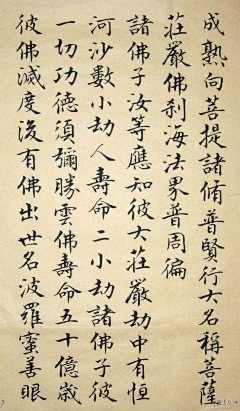 成熟向菩提諸脩普賢行大名稱菩薩
莊嚴佛刹海法界普周徧
諸佛子汝等應知彼大莊嚴劫中有恒
河沙數小劫人壽命二小劫諸佛子彼
一切功德須彌勝雲佛壽命五十億歲
彼佛滅度後有佛出世名波羅蜜善眼